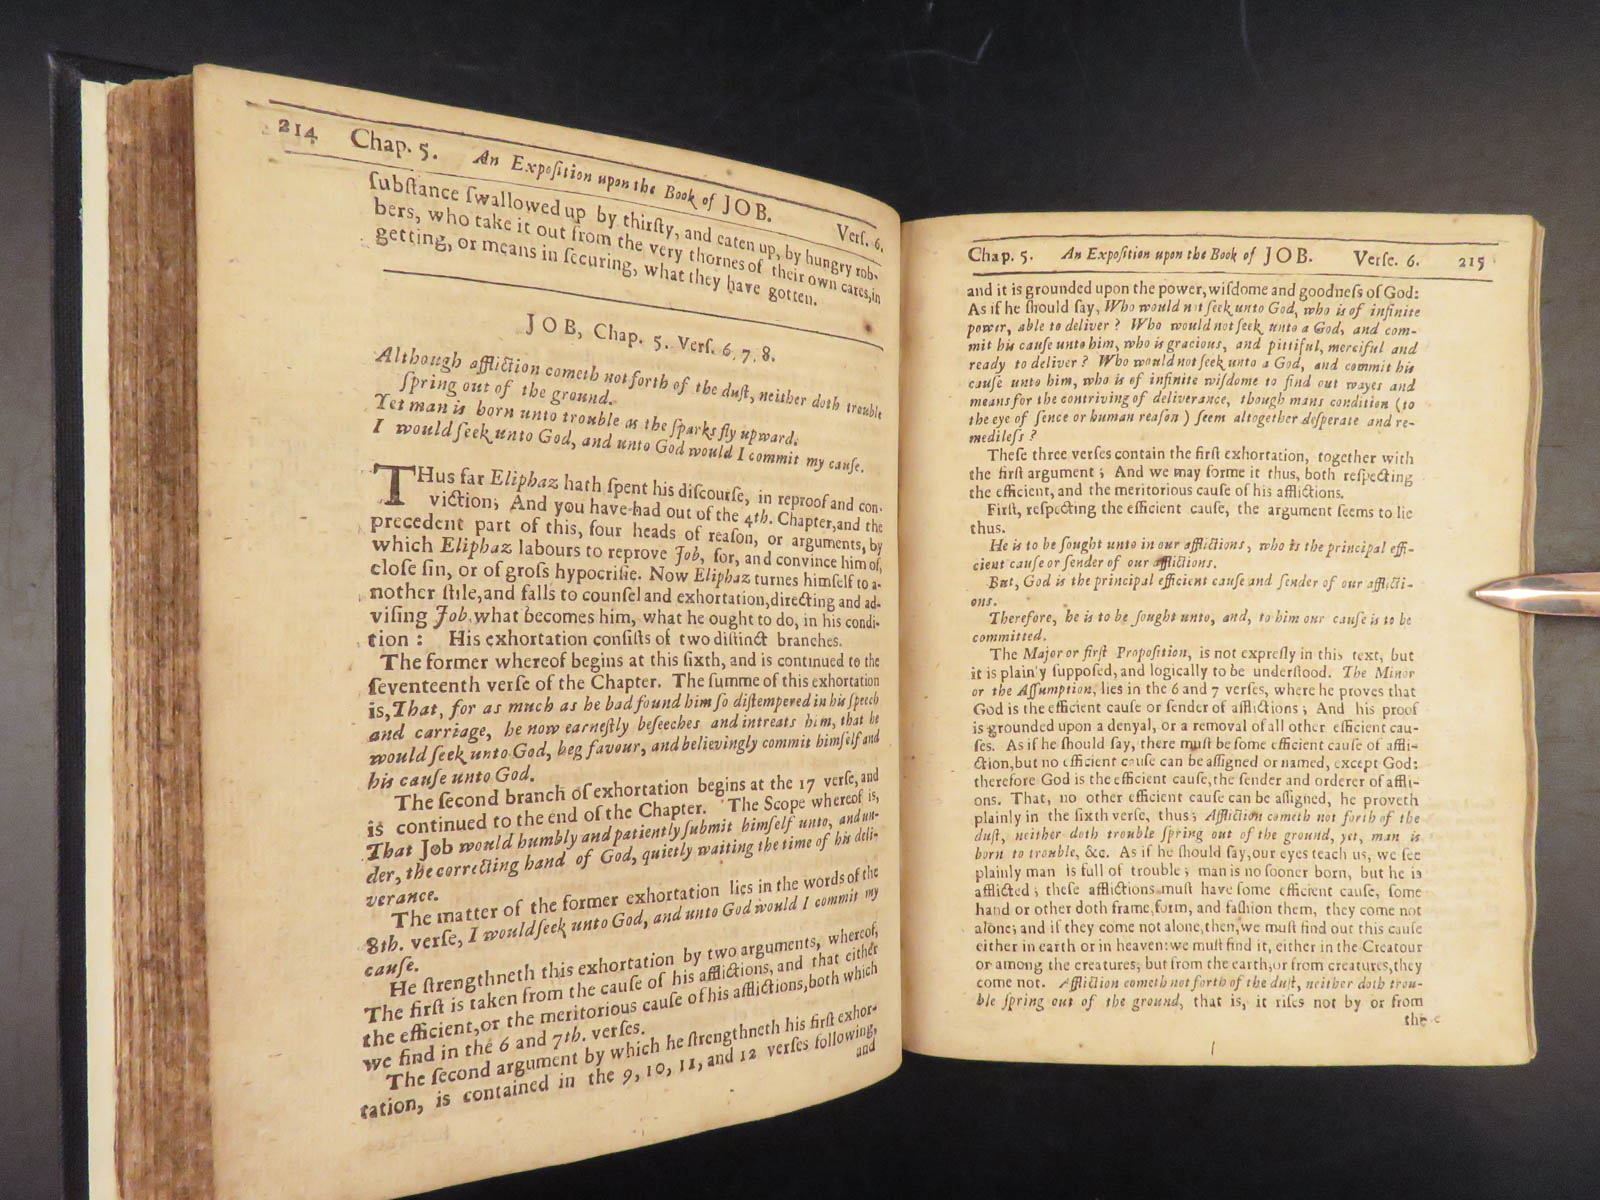 214 Chap. 5. An Expoſition upon the Book of JOB. Verſ. 6.
ſubſtance ſwallowed up by thirſty, and eaten up, by hungry rob-
bers, who take it out from the very thornes of their own cares, in
getting, or means in ſecuring, what they have gotten.
JOB, Chap. 5. Verſ. 6, 7, 8.
Although affliction cometh not forth of the duſt, neither doth trouble
ſpring out of the ground.
Yet man is born unto trouble as the ſparks fly upward.
I would ſeek unto God, and unto God would I commit my cauſe.
THus far Eliphaz hath ſpent his diſcourſe, in reproof and con-
viction; And you have had out of the 4th. Chapter, and the
precedent part of this, four heads of reaſon, or arguments, by
which Eliphaz labours to reprove Job, for, and convince him of,
cloſe ſin, or of groſs hypocriſie. Now Eliphaz turnes himſelf to a-
nother ſtile, and falls to counſel and exhortation, directing and ad-
viſing Job, what becomes him, what he ought to do, in his condi-
tion: His exhortation conſiſts of two diſtinct branches.
The former whereof begins at this ſixth, and is continued to the
ſeventeenth verſe of the Chapter. The ſumme of this exhortation
is, That, for as much as he had found him ſo diſtempered in his ſpeech
and carriage, he now earneſtly beſeeches and intreats him, that he
would ſeek unto God, beg favour, and believingly commit himſelf and
his cauſe unto God.
The ſecond branch of exhortation begins at the 17 verſe, and
is continued to the end of the Chapter. The Scope whereof is,
That Job would humbly and patiently ſubmit himſelf unto, and un-
der, the correcting hand of God, quietly waiting the time of his deli-
verance.
The matter of the former exhortation lies in the words of the
8th. verſe, I would ſeek unto God, and unto God would I commit my
cauſe.
He ſtrengthneth this exhortation by two arguments, whereof,
The firſt is taken from the cauſe of his afflictions, and that either
the efficient, or the meritorious cauſe of his afflictions, both which
we find in the 6 and 7th. verſes.
The ſecond argument by which he ſtrengthneth his firſt exhor-
tation, is contained in the 9, 10, 11, and 12 verſes following,
and
Chap. 5. An Expoſition upon the Book of JOB. Verſe. 6. 215
and it is grounded upon the power, wiſdome and goodneſs of God:
As if he ſhould ſay, Who would not ſeek unto God, who is of infinite
power, able to deliver? Who would not ſeek unto a God, and com-
mit his cauſe unto him, who is gracious, and pittiful, merciful and
ready to deliver? Who would not ſeek unto a God, and commit his
cauſe unto him, who is of infinite wiſdome to find out wayes and
means for the contriving of deliverance, though mans condition (to
the eye of ſence or human reaſon) ſeem altogether deſperate and re-
medileſs?
Theſe three verſes contain the firſt exhortation, together with
the firſt argument; And we may forme it thus, both reſpecting
the efficient, and the meritorious cauſe of his afflictions.
Firſt, reſpecting the efficient cauſe, the argument ſeems to lie
thus.
He is to be ſought unto in our afflictions, who is the principal effi-
cient cauſe or ſender of our afflictions.
But, God is the principal efficient cauſe and ſender of our afflicti-
ons.
Therefore, he is to be ſought unto, and, to him our cauſe is to be
committed.
The Major or firſt Propoſition, is not expreſly in this text, but
it is plain'y ſuppoſed, and logically to be underſtood. The Minor
or the Aſſumption, lies in the 6 and 7 verſes, where he proves that
God is the efficient cauſe or ſender of afflictions; And his proof
is grounded upon a denyal, or a removal of all other efficient cau-
ſes. As if he ſhould ſay, there muſt be ſome efficient cauſe of affli-
ction, but no efficient cauſe can be aſſigned or named, except God:
therefore God is the efficient cauſe, the ſender and orderer of afflicti-
ons. That, no other efficient cauſe can be aſſigned, he proveth
plainly in the ſixth verſe, thus; Affliction cometh not forth of the
duſt, neither doth trouble ſpring out of the ground, yet, man is
born to trouble, &c. As if he ſhould ſay, our eyes teach us, we ſee
plainly man is full of trouble; man is no ſooner born, but he is
afflicted; theſe afflictions muſt have ſome efficient cauſe, ſome
hand or other doth frame, form, and faſhion them, they come not
alone; and if they come not alone, then, we muſt find out this cauſe
either in earth or in heaven: we muſt find it, either in the Creatour
or among the creatures; but from the earth, or from creatures, they
come not. Affliction cometh not forth of the duſt, neither doth trou-
ble ſpring out of the ground, that is, it riſes not by or from
the